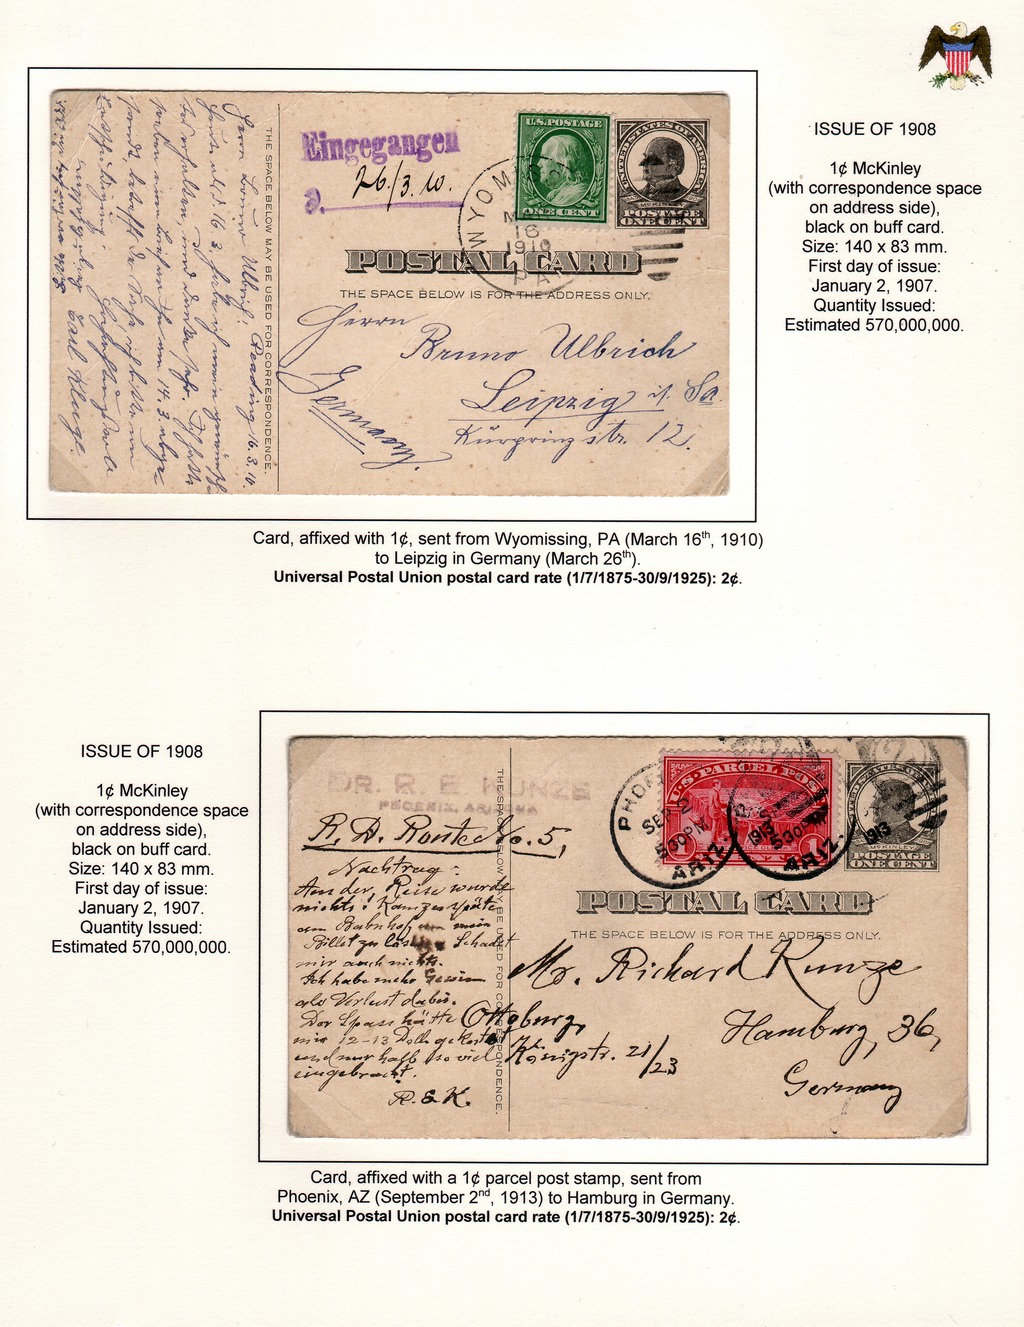 ISSUE OF 1908
1¢ McKinley
(with correspondence space
on address side),
black on buff card.
Size: 140 x 83 mm.
First day of issue:
January 2, 1907.
Quantity Issued:
Estimated 570,000,000.
Eingegangen
26./3.10.
U.S. POSTAGE
ONE CENT
UNITED STATES OF AMERICA
McKINLEY
POSTAGE
ONE CENT
WYOMI
16
1910
PA
POSTAL CARD
THE SPACE BELOW IS FOR THE ADDRESS ONLY.
THE SPACE BELOW MAY BE USED FOR CORRESPONDENCE.
Herrn
Bruno Ulbrich
Leipzig i. Sa.
Kürprinzstr. 12.
Germany.
Reading 16.3.10.
Herrn Bruno Ulbrich!
Carl Kluge
Card, affixed with 1¢, sent from Wyomissing, PA (March 16th, 1910)
to Leipzig in Germany (March 26th).
Universal Postal Union postal card rate (1/7/1875-30/9/1925): 2¢.
ISSUE OF 1908
1¢ McKinley
(with correspondence space
on address side),
black on buff card.
Size: 140 x 83 mm.
First day of issue:
January 2, 1907.
Quantity Issued:
Estimated 570,000,000.
DR. R. E. KUNZE
PHOENIX, ARIZONA
R. D. Route No. 5,
Nachtrag:
Aus der Reise wurde
nichts! Kam zu spät
am Bahnhof um mein
Billet zu lösen. Schadet
mir auch nichts.
Ich habe mehr Gewinn
als Verlust dabei.
Der Spass hätte
mir 12-13 Doll. gekostet
und nur halb so viel
eingebracht.
R. E. K.
THE SPACE BELOW MAY BE USED FOR CORRESPONDENCE.
U.S. PARCEL POST
SEP 2
530PM
ARIZ.
1913
530P
ARIZ.
1913
McKINLEY
POSTAGE
ONE CENT
POSTAL CARD
THE SPACE BELOW IS FOR THE ADDRESS ONLY.
Mr. Richard Kunze
Ottoburg,
Hamburg, 36,
Königstr. 21/23
Germany
Card, affixed with a 1¢ parcel post stamp, sent from
Phoenix, AZ (September 2nd, 1913) to Hamburg in Germany.
Universal Postal Union postal card rate (1/7/1875-30/9/1925): 2¢.